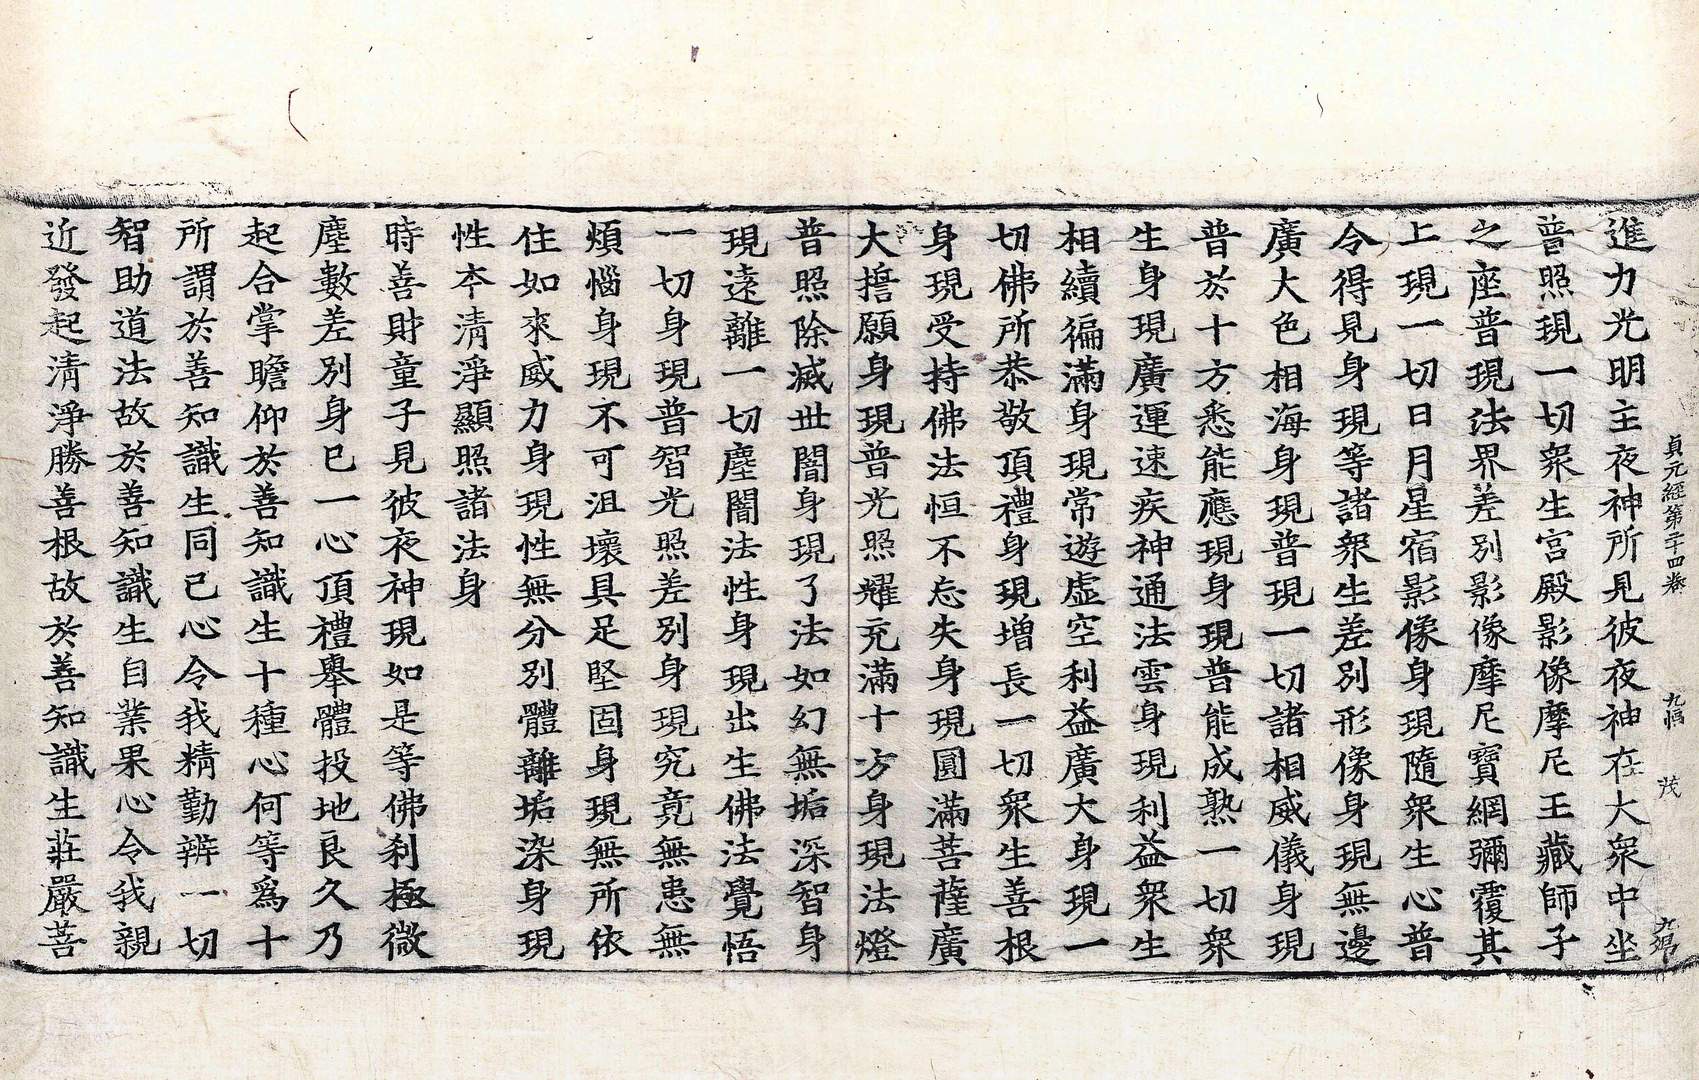 貞元經第二十四卷 九幅 茂
進力光明主夜神所見彼夜神在大衆中坐
普照現一切衆生宮殿影像摩尼王藏師子
之座普現法界差別影像摩尼寶網彌覆其
上現一切日月星宿影像身現隨衆生心普
令得見身現等諸衆生差別形像身現無邊
廣大色相海身現普現一切諸相威儀身現
普於十方悉能應現身現普能成熟一切衆
生身現廣運速疾神通法雲身現利益衆生
相續徧滿身現常遊虛空利益廣大身現一
切佛所恭敬頂禮身現增長一切衆生善根
身現受持佛法恒不忘失身現圓滿菩薩廣
大擔願身現普光照耀充滿十方身現法燈
普照除滅世闇身現了法如幻無垢深智身
現遠離一切塵闇法性身現出生佛法覺悟
一切身現普智光照差別身現究竟無患無
煩惱身現不可沮壞具足堅固身現無所依
住如來威力身現性無分別體離垢染身現
性夲清淨顯照諸法身
時善財童子見彼夜神現如是等佛刹極微
塵數差別身已一心頂禮舉體投地良久乃
起合掌瞻仰於善知識生十種心何等爲十
所謂於善知識生同己心令我精勤辨一切
智助道法故於善知識生自業果心令我親
近發起清淨勝善根故於善知識生莊嚴菩